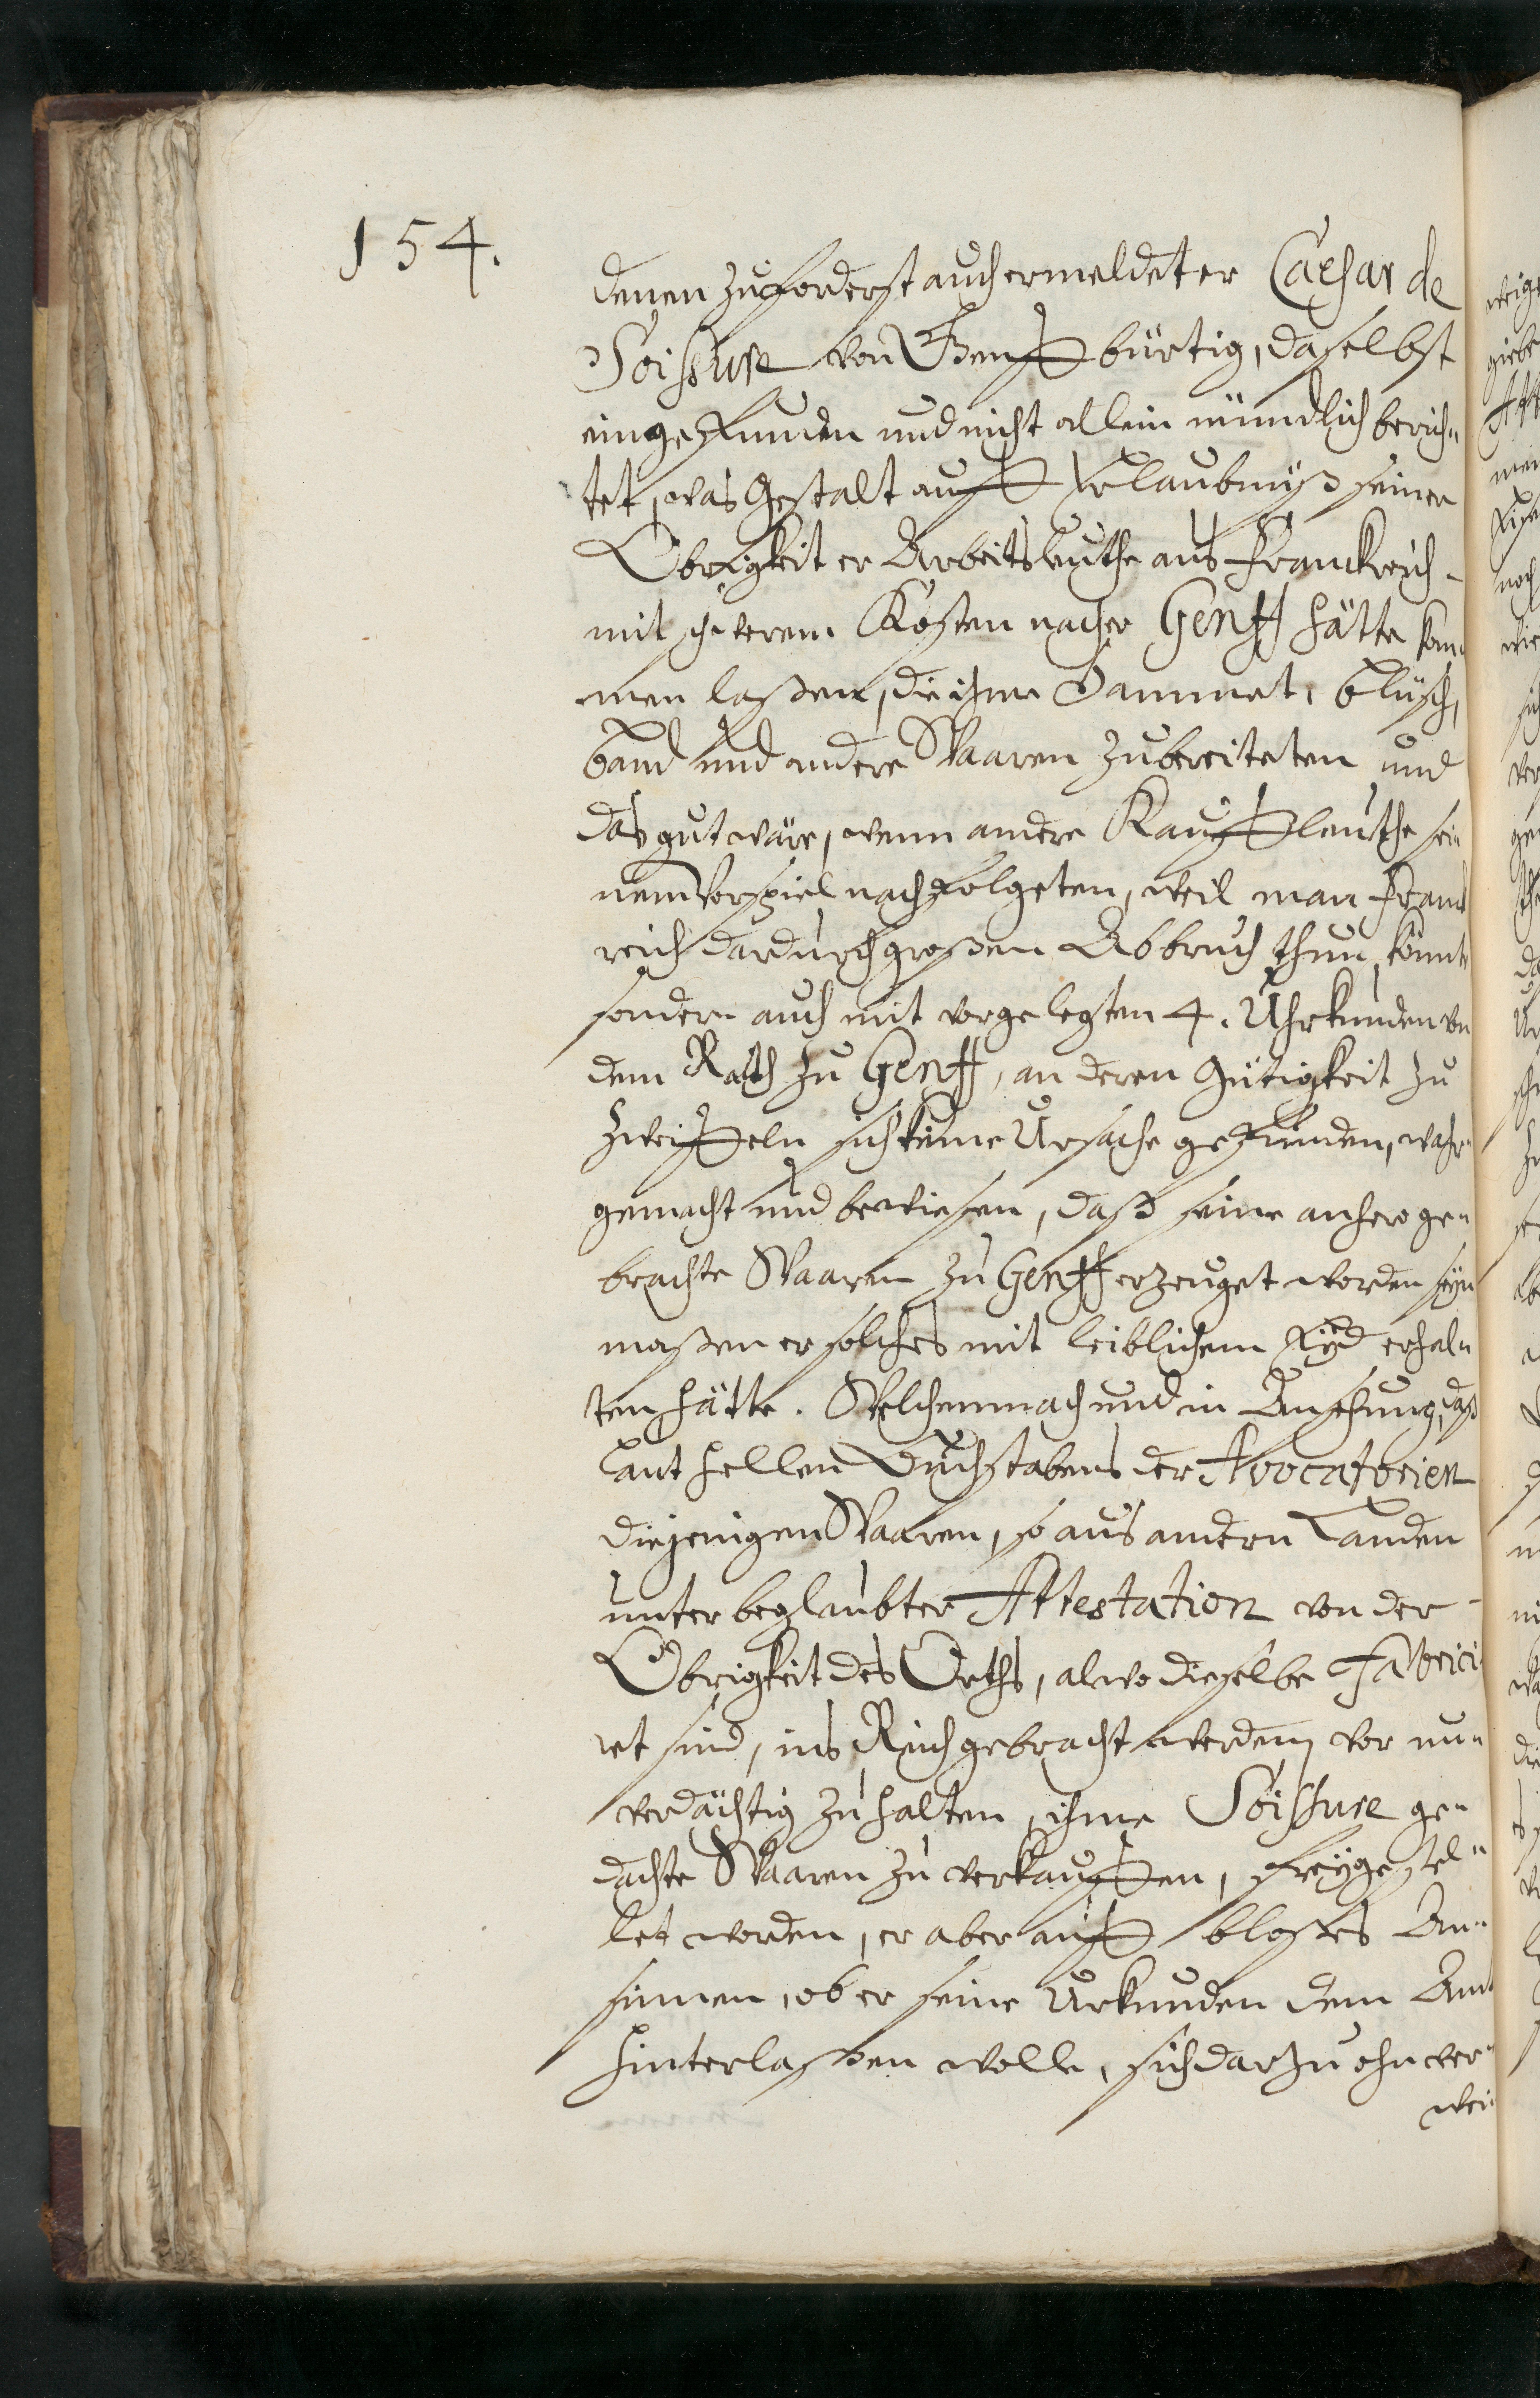 154.
denen zuforderst auch ermeldeter Caesar de
Soissure von Genff bürtig, daselbst
eingefunden und nicht allein mündlich berich-
tet, was Gestalt auff Erlaubnyß seiner
Obrigkeit er Arbeitsleuthe aus Franckreich
mit schwerem Kosten nacher Genff hätte kom-
men laßen, die ihme Sammet, Blüsch,
Band und andere Waaren zubereiteten und
das gut wäre, wenn andere Kauffleuthe sei-
nem Vorspiel nachfolgeten, weil man Franck
reich dardurch großen Abbruch thun könnte
sondern auch mit vorgelegten 4. Uhrkunden von
dem Rath zu Genff, an deren Gütigkeit zu
zweiffeln sich keine Ursache gefunden, wahr-
gemacht und bewiesen, daß seine anhero ge-
brachte Waaren zu Genff erzeuget worden seyn
maßen er solches mit leiblichem Eyd erhal-
ten hätte. Welchemnach und in Ansehung, daß
laut hellen Buchstabens der Avocatorien
diejenigen Waaren, so aus andern Landen
unter beglaubter Attestation von der
Obrigkeit des Orths, alwo dieselbe fabrici
ret sind, ins Reich gebracht werden, vor un-
verdächtig zu halten, ihme Soissure ge-
dachte Waaren zu verkauffen, freygestel-
let worden, er aber auff bloßes An-
sinnen, ob er seine Urkunden dem Amt
hinterlaßen wolle, sich darzu ohnver-
wei-